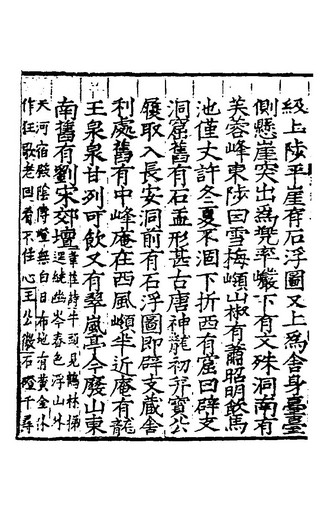 級上陟平崖有石浮圖又上爲舍身臺臺
側懸崖突出爲兜率巖下有文殊洞南有
芙蓉峰東陟曰雪梅嶺山椒有蕭昭明飲馬
池僅丈許冬夏不涸下折西有窟曰辟支
洞窟舊有石盂形甚古唐神龍初寺寶公
履取入長安洞前有石浮圖即辟支藏舍
利處舊有中峰庵在西風嶺半近庵有龍
王泉泉甘冽可飲又有翠嵐亭今廢山東
南舊有劉宋郊壇韋莊詩牛頭見鶴林梯
逕繞幽岑春色浮山外
天河宿殿陰傳燈無白日布地有黃金休
作狂歌老回看不住心王公儼石磴千尋